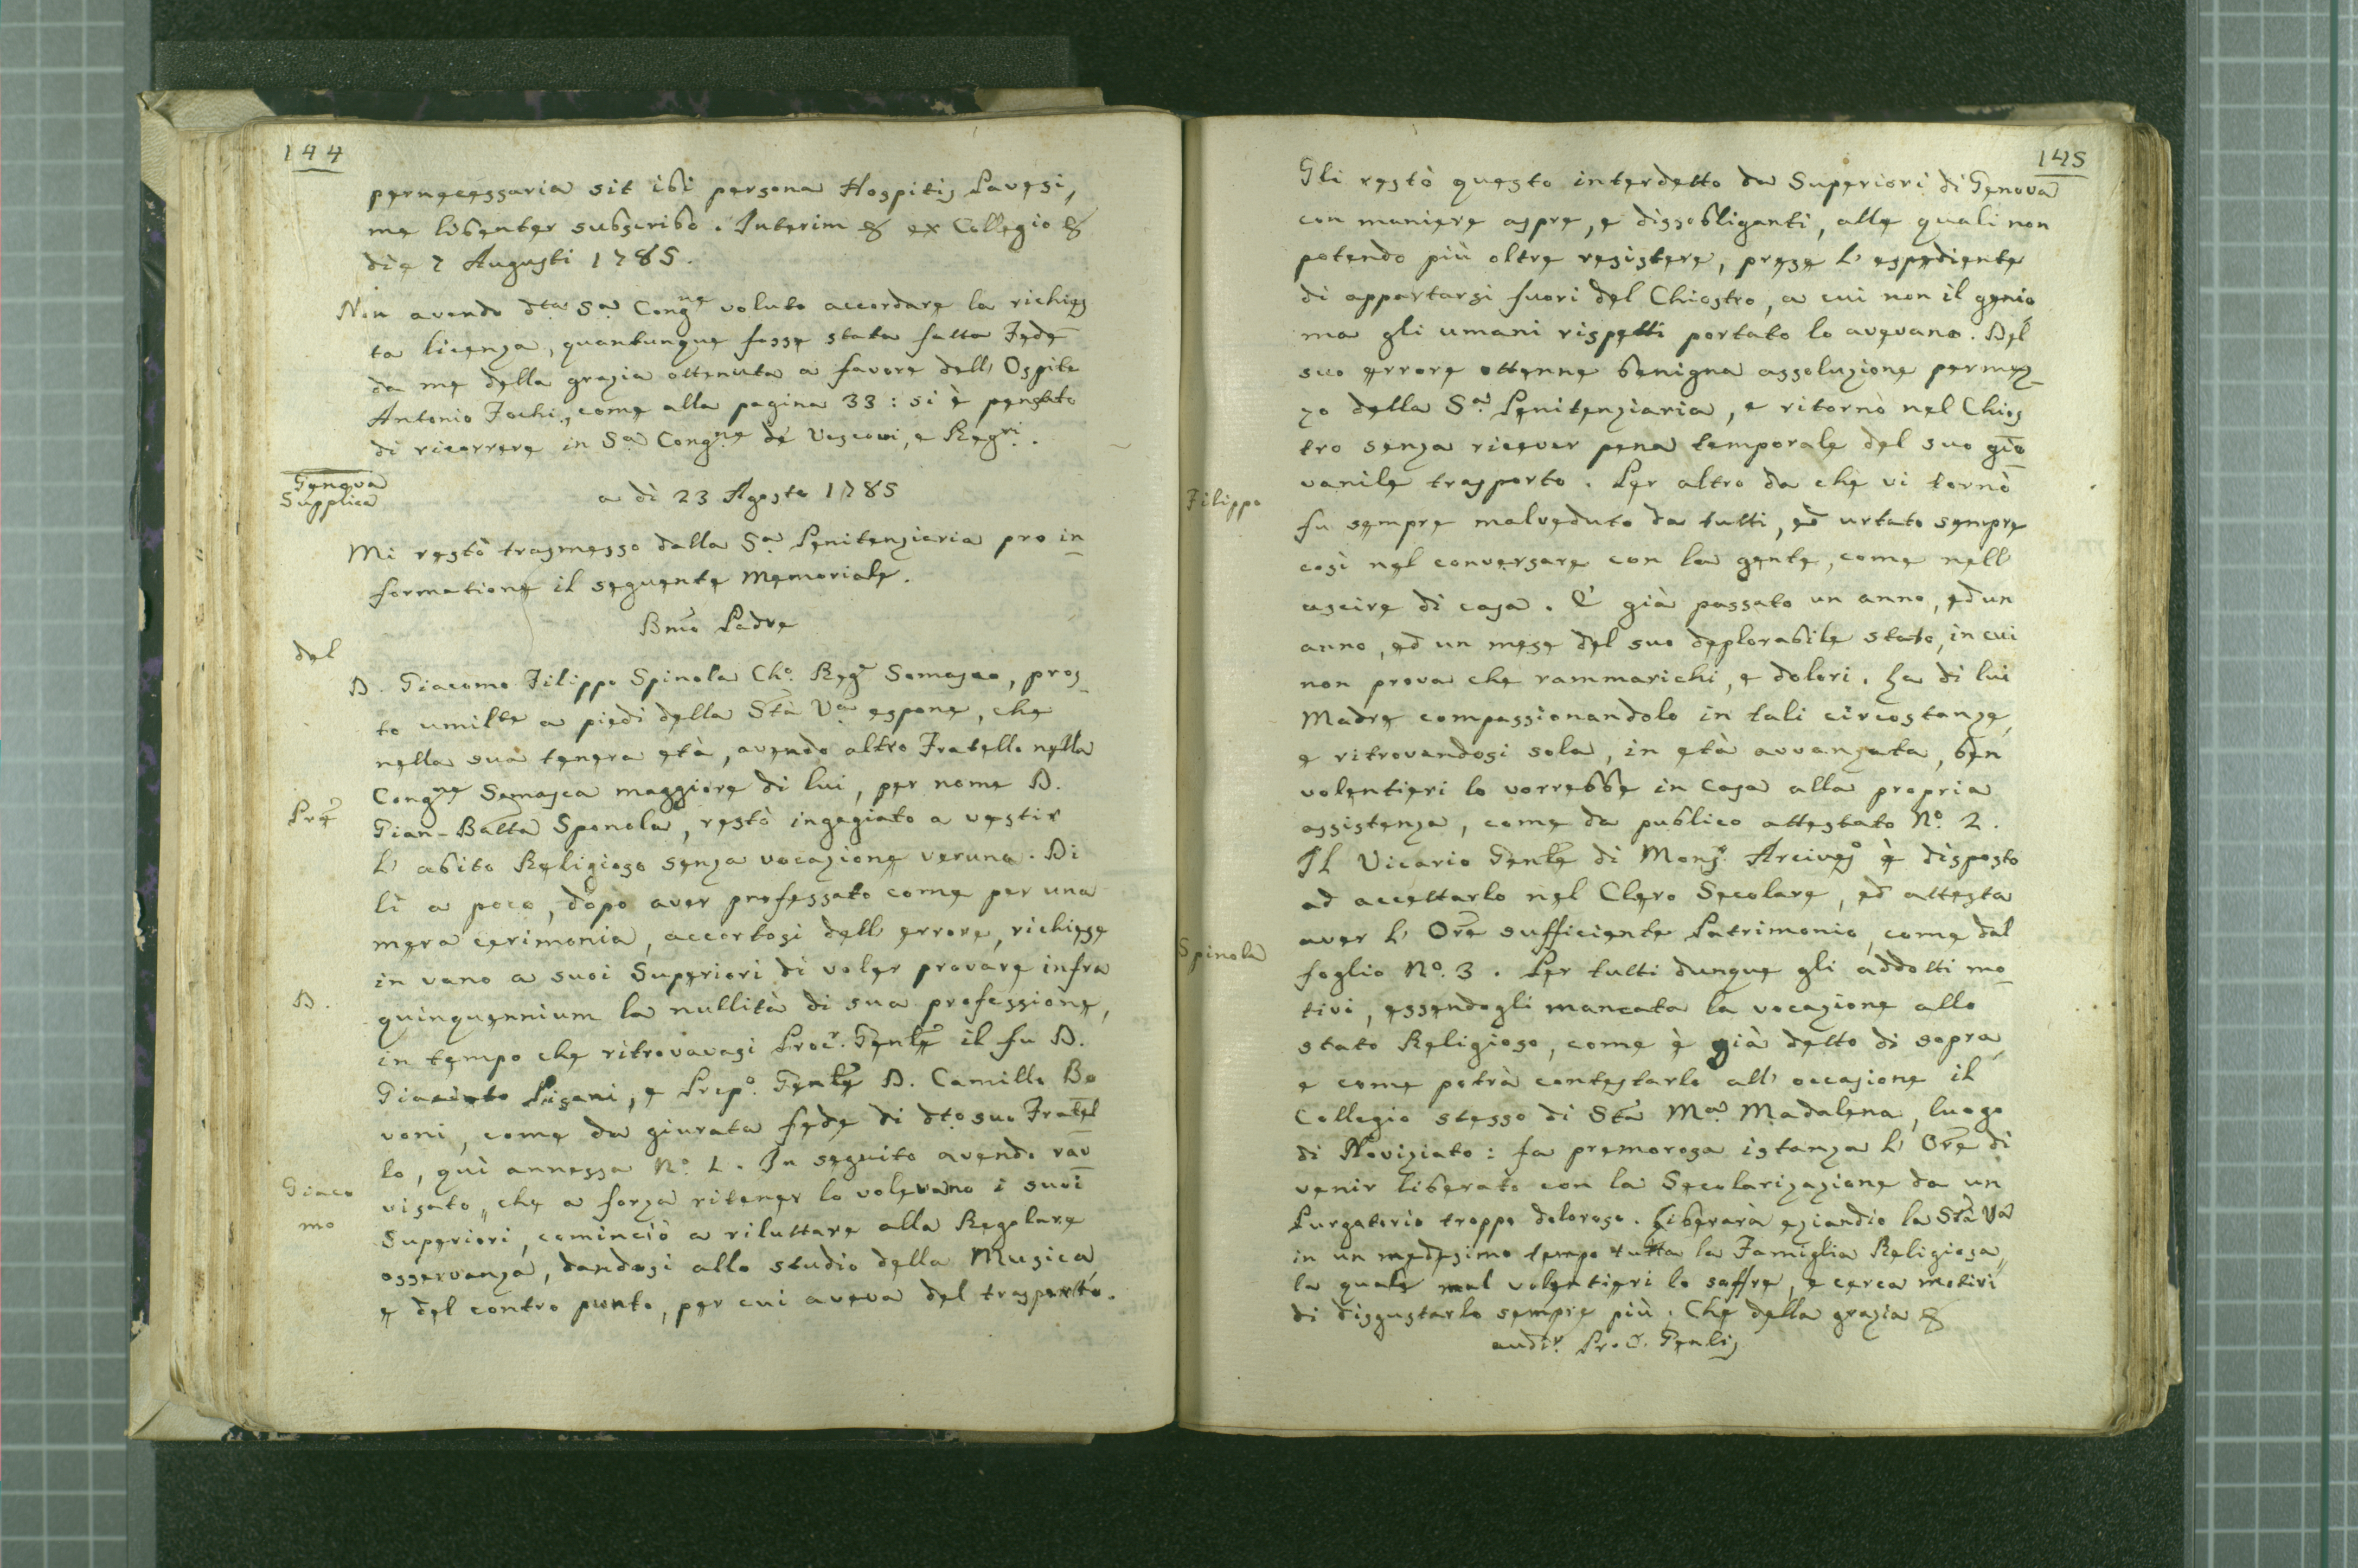 144
pernecessaria sit ibi persona Hospitis Pavesi,
me libenter subscribo. Interim & ex Collegio &
die 7 Augusti 1785.
Non avendo dta Sa Congne voluto accordare la richies
ta licenza, quantunque fosse stata fatta Fede
da me della grazia ottenuta a favore dell' Ospite
Antonio Fochi, come alla pagina 33: si è pensato
di ricorrere in Sa Congne de' Vescovi, e Regri.
Genova
Supplica
a dì 23 Agosto 1785
Mi restò trasmesso dalla Sa Penitenziaria pro in
formatione il seguente Memoriale.
Bmo Padre
del
D. Giacomo Filippo Spinola Cho. Regr Somasco, pros
to umilte a piedi della Stà Va espone, che
nella sua tenera età, avendo altro Fratello nella
Congne Somasca maggiore di lui, per nome D.
Prē
Gian-Batta Sponola, restò ingagiato a vestir
l' abito Religioso senza vocazione veruna. Di
lì a poco, dopo aver professato come per una
mera cerimonia, accortosi dell' errore, richiese
in vano a suoi Superiori di voler provare infra
D.
quinquennium la nullità di sua professione,
in tempo che ritrovavasi Procr. Genle il fu D.
Giacinto Pisani, e Prepo. Genle D. Camillo Bo
voni, come da giurata fede di dto suo Fratel
lo, quì annessa No. 1. In seguito avendo rav
Giaco
visato, che a forza ritener lo volevano i suoi
mo
Superiori, cominciò a riluttare alla Regolare
osservanza, dandosi allo studio della Musica
e del contro punto, per cui aveva del trasporto.
145
Gli restò questo interdetto da Superiori di Genova
con maniere aspre, e dissobliganti, alle quali non
potendo più oltre resistere, prese l' espediente
di appartarsi fuori del Chiostro, a cui non il genio
ma gli umani rispetti portato lo avevano. Del
suo errore ottenne benigna assoluzione permez
zo della Sa Penitenziaria, e ritornò nel Chios
tro senza ricever pena temporale del suo gio
vanile trasporto. Per altro da che vi tornò
Filippo
fu sempre malveduto da tutti, ed urtato sempre
così nel conversare con la gente, come nell'
uscire di casa. È già passato un anno, ed un
anno, ed un mese del suo deplorabile stato, in cui
non prova che rammarichi, e dolori. La di lui
Madre compassionandolo in tali circostanze,
e ritrovandosi sola, in età avvanzata, ben
volentieri lo vorrebbe in casa alla propria
assistenza, come da publico attestato No. 2.
Il Vicario Genle di Monsr. Arcivo è disposto
ad accettarlo nel Clero Secolare, ed attesta
aver l' Ore sufficiente Patrimonio, come dal
Spinola
foglio No. 3. Per tutti dunque gli addotti mo
tivi, essendogli mancata la vocazione allo
stato Religioso, come è già detto di sopra,
e come potrà contestarlo all' occasione il
Collegio stesso di Sta Ma Madalena, luogo
di Noviziato: fa premorosa istanza l' Ore di
venir liberato con la Secolarizazione da un
Purgatorio troppo doloroso. Libererà eziandio la Stà Va
in un medesimo tempo tutta la Famiglia Religiosa,
la quale mal volentieri lo soffre, e cerca motivi
di disgustarlo sempre più. Che della grazia &
audir. Proc. Genlis